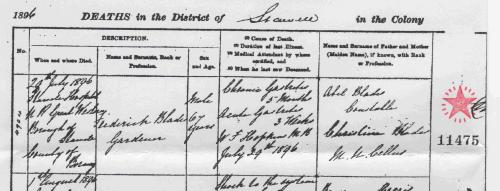 1896 DEATHS in the District of Stawell in the Colony
No.
DESCRIPTION.
When and where Died.
Name and Surname, Rank or Profession.
Sex and Age.
(1) Cause of Death.
(2) Duration of last Illness.
(3) Medical Attendant by whom certified, and
(4) When he last saw Deceased.
Name and Surname of Father and Mother (Maiden Name), if known, with Rank or Profession.
29th July 1896
Hospital
Borough of
Stawell
County of
Borung
Frederick Blades
Gardener
Male
67
Years
Chronic Gastritis
5 Months
Acute Gastritis
3 Weeks
W F Hopkins M B
July 29th 1896
Abel Blades
Christina Blades
M. N. Collins
11475
1st August 1896
Shock to the system